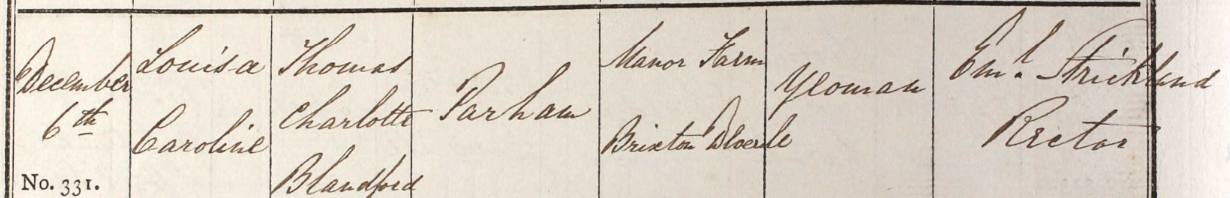 December
6th
No. 331.
Louisa
Caroline
Thomas
Charlotte
Blandford
Parham
Manor Farm
Brixton
Yeoman
Eml. Strickland
Rector